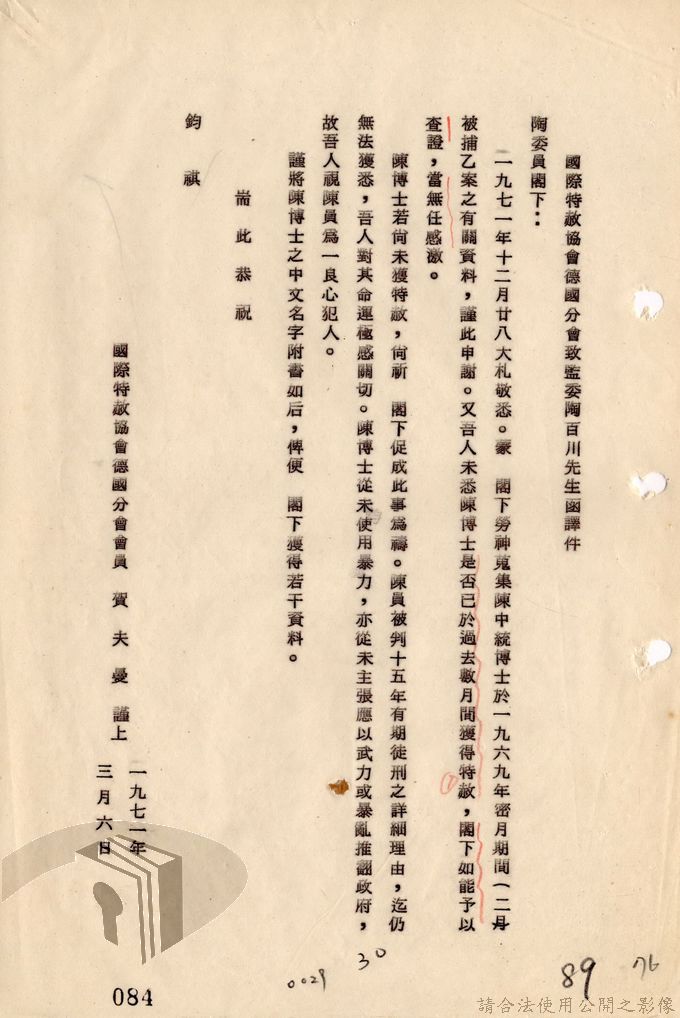 國際特赦協會德國分會致監委陶百川先生函譯件
陶委員閣下：
一九七一年十二月廿八大札敬悉。蒙　閣下勞神蒐集陳中統博士於一九六九年蜜月期間（二月
被捕乙案之有關資料，謹此申謝。又吾人未悉陳博士是否已於過去數月間獲得特赦，閣下如能予以
查證，當無任感激。
陳博士若尚未獲特赦，尚祈　閣下促成此事為禱。陳員被判十五年有期徒刑之詳細理由，迄仍
無法獲悉，吾人對其命運極感關切。陳博士從未使用暴力，亦從未主張應以武力或暴亂推翻政府，
故吾人視陳員為一良心犯人。
謹將陳博士之中文名字附書如后，俾便　閣下獲得若干資料。
耑此恭祝
鈞祺
國際特赦協會德國分會會員　賀夫曼　謹上
一九七一年
三月六日
30
0029
89
76
084
請合法使用公開之影像